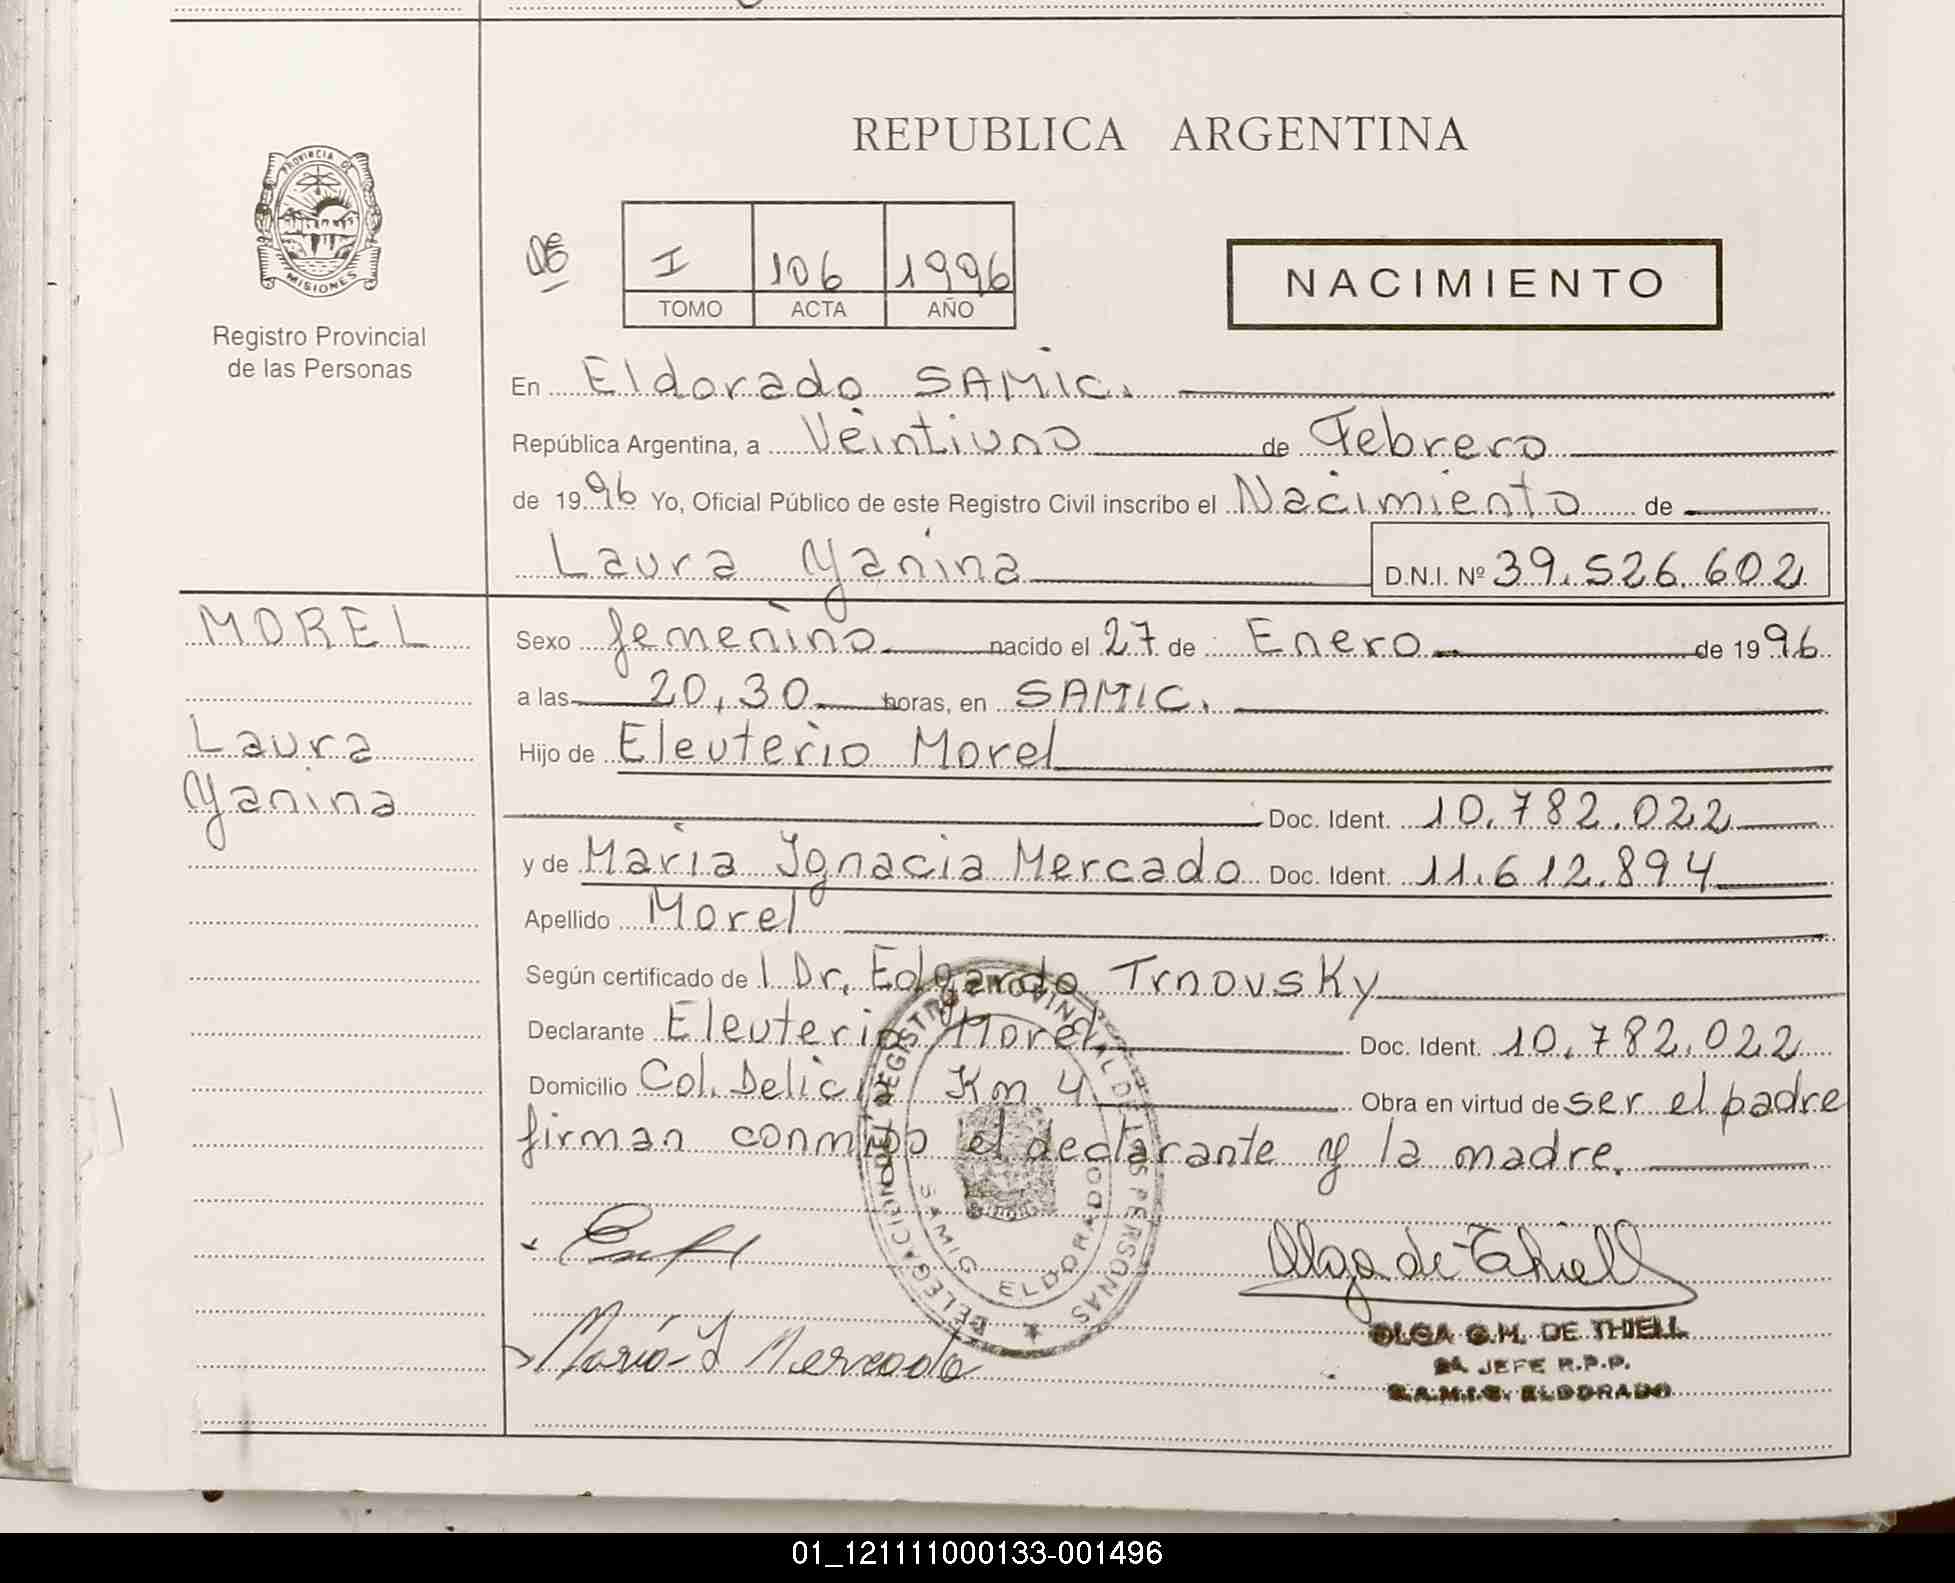 REPUBLICA ARGENTINA
PROVINCIA DE
MISIONES
Registro Provincial
de las Personas
I 106 1996
TOMO ACTA AÑO
NACIMIENTO
En Eldorado SAMIC.
República Argentina, a Veintiuno de Febrero
de 1996 Yo, Oficial Público de este Registro Civil inscribo el Nacimiento de
Laura Yanina D.N.I. Nº 39.526.602
MOREL
Laura
Yanina
Sexo femenino nacido el 27 de Enero de 1996
a las 20,30 horas, en SAMIC.
Hijo de Eleuterio Morel
Doc. Ident. 10.782.022
y de Maria Ignacia Mercado Doc. Ident. 11.612.894
Apellido Morel
Según certificado de l Dr. Edgardo Trnovsky
Declarante Eleuterio Morel Doc. Ident. 10.782.022
Domicilio Col. Delicia Km 4 Obra en virtud de ser el padre
firman conmigo el declarante y la madre.
DELEGACION DEL REGISTRO PROVINCIAL DE LAS PERSONAS
SAMIC ELDORADO
Olga de Thiell
Maria I Mercado
OLGA G.H. DE THIELL
2a. JEFE R.P.P.
S.A.M.I.C. ELDORADO
01_121111000133-001496